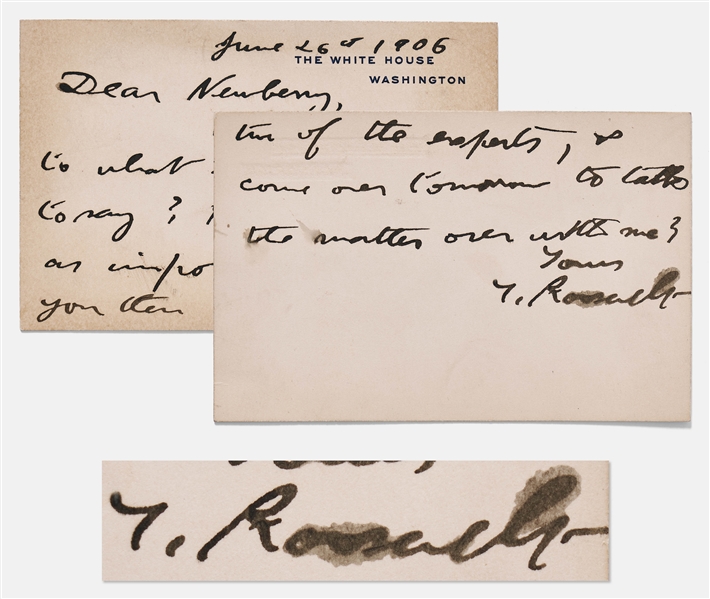 June 26th 1906
THE WHITE HOUSE
WASHINGTON
Dear Newberry,
to what
to say?
as impo
you then
two of the experts, &
come over tomorrow to talk
the matter over with me?
Yours
T. Roosevelt
T. Roosevelt